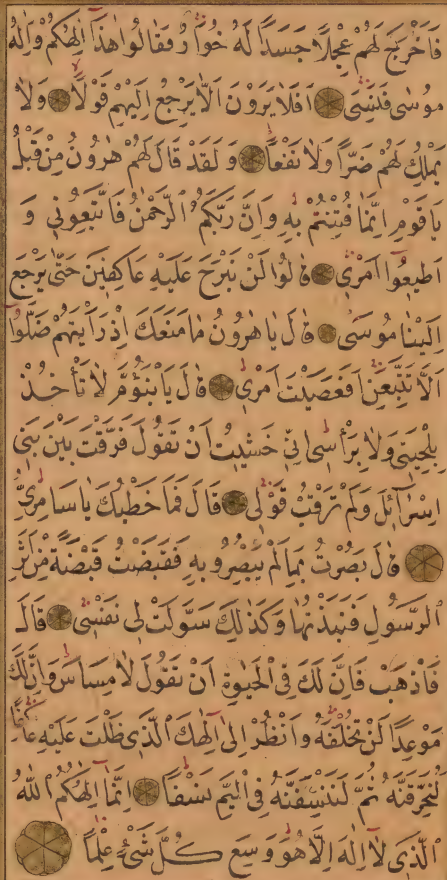 فَاَخْرَجَ لَهُمْ عِجْلًا جَسَدًا لَهُ خُوَارٌ فَقَالُوا هٰذَا اِلٰهُكُمْ وَاِلٰهُ
مُوسٰى فَنَسِىَ ۝ اَفَلَا يَرَوْنَ اَلَّا يَرْجِعُ اِلَيْهِمْ قَوْلًا ۝ وَلَا
يَمْلِكُ لَهُمْ ضَرًّا وَلَا نَفْعًا ۝ وَلَقَدْ قَالَ لَهُمْ هٰرُونُ مِنْ قَبْلُ
يَا قَوْمِ اِنَّمَا فُتِنْتُمْ بِهِ وَاِنَّ رَبَّكُمُ الرَّحْمٰنُ فَاتَّبِعُونِى وَ
اَطِيعُوا اَمْرِى ۝ قَالُوا لَنْ نَبْرَحَ عَلَيْهِ عَاكِفِينَ حَتّٰى يَرْجِعَ
اِلَيْنَا مُوسٰى ۝ قَالَ يَا هٰرُونُ مَا مَنَعَكَ اِذْ رَاَيْتَهُمْ ضَلُّوا
اَلَّا تَتَّبِعَنِ اَفَعَصَيْتَ اَمْرِى ۝ قَالَ يَابْنَؤُمَّ لَا تَأْخُذْ
بِلِحْيَتِى وَلَا بِرَأْسِى اِنِّى خَشِيتُ اَنْ تَقُولَ فَرَّقْتَ بَيْنَ بَنِى
اِسْرَٓائِلَ وَلَمْ تَرْقُبْ قَوْلِى ۝ قَالَ فَمَا خَطْبُكَ يَا سَامِرِىُّ
۝ قَالَ بَصُرْتُ بِمَا لَمْ يَبْصُرُوا بِهِ فَقَبَضْتُ قَبْضَةً مِنْ اَثَرِ
الرَّسُولِ فَنَبَذْتُهَا وَكَذٰلِكَ سَوَّلَتْ لِى نَفْسِى ۝ قَالَ
فَاذْهَبْ فَاِنَّ لَكَ فِى الْحَيٰوةِ اَنْ تَقُولَ لَا مِسَاسَ وَاِنَّ لَكَ
مَوْعِدًا لَنْ تُخْلَفَهُ وَانْظُرْ اِلٰى اِلٰهِكَ الَّذِى ظَلْتَ عَلَيْهِ عَاكِفًا
لَنُحَرِّقَنَّهُ ثُمَّ لَنَنْسِفَنَّهُ فِى الْيَمِّ نَسْفًا ۝ اِنَّمَا اِلٰهُكُمُ اللّٰهُ
الَّذِى لَا اِلٰهَ اِلَّا هُوَ وَسِعَ كُلَّ شَىْءٍ عِلْمًا ۝